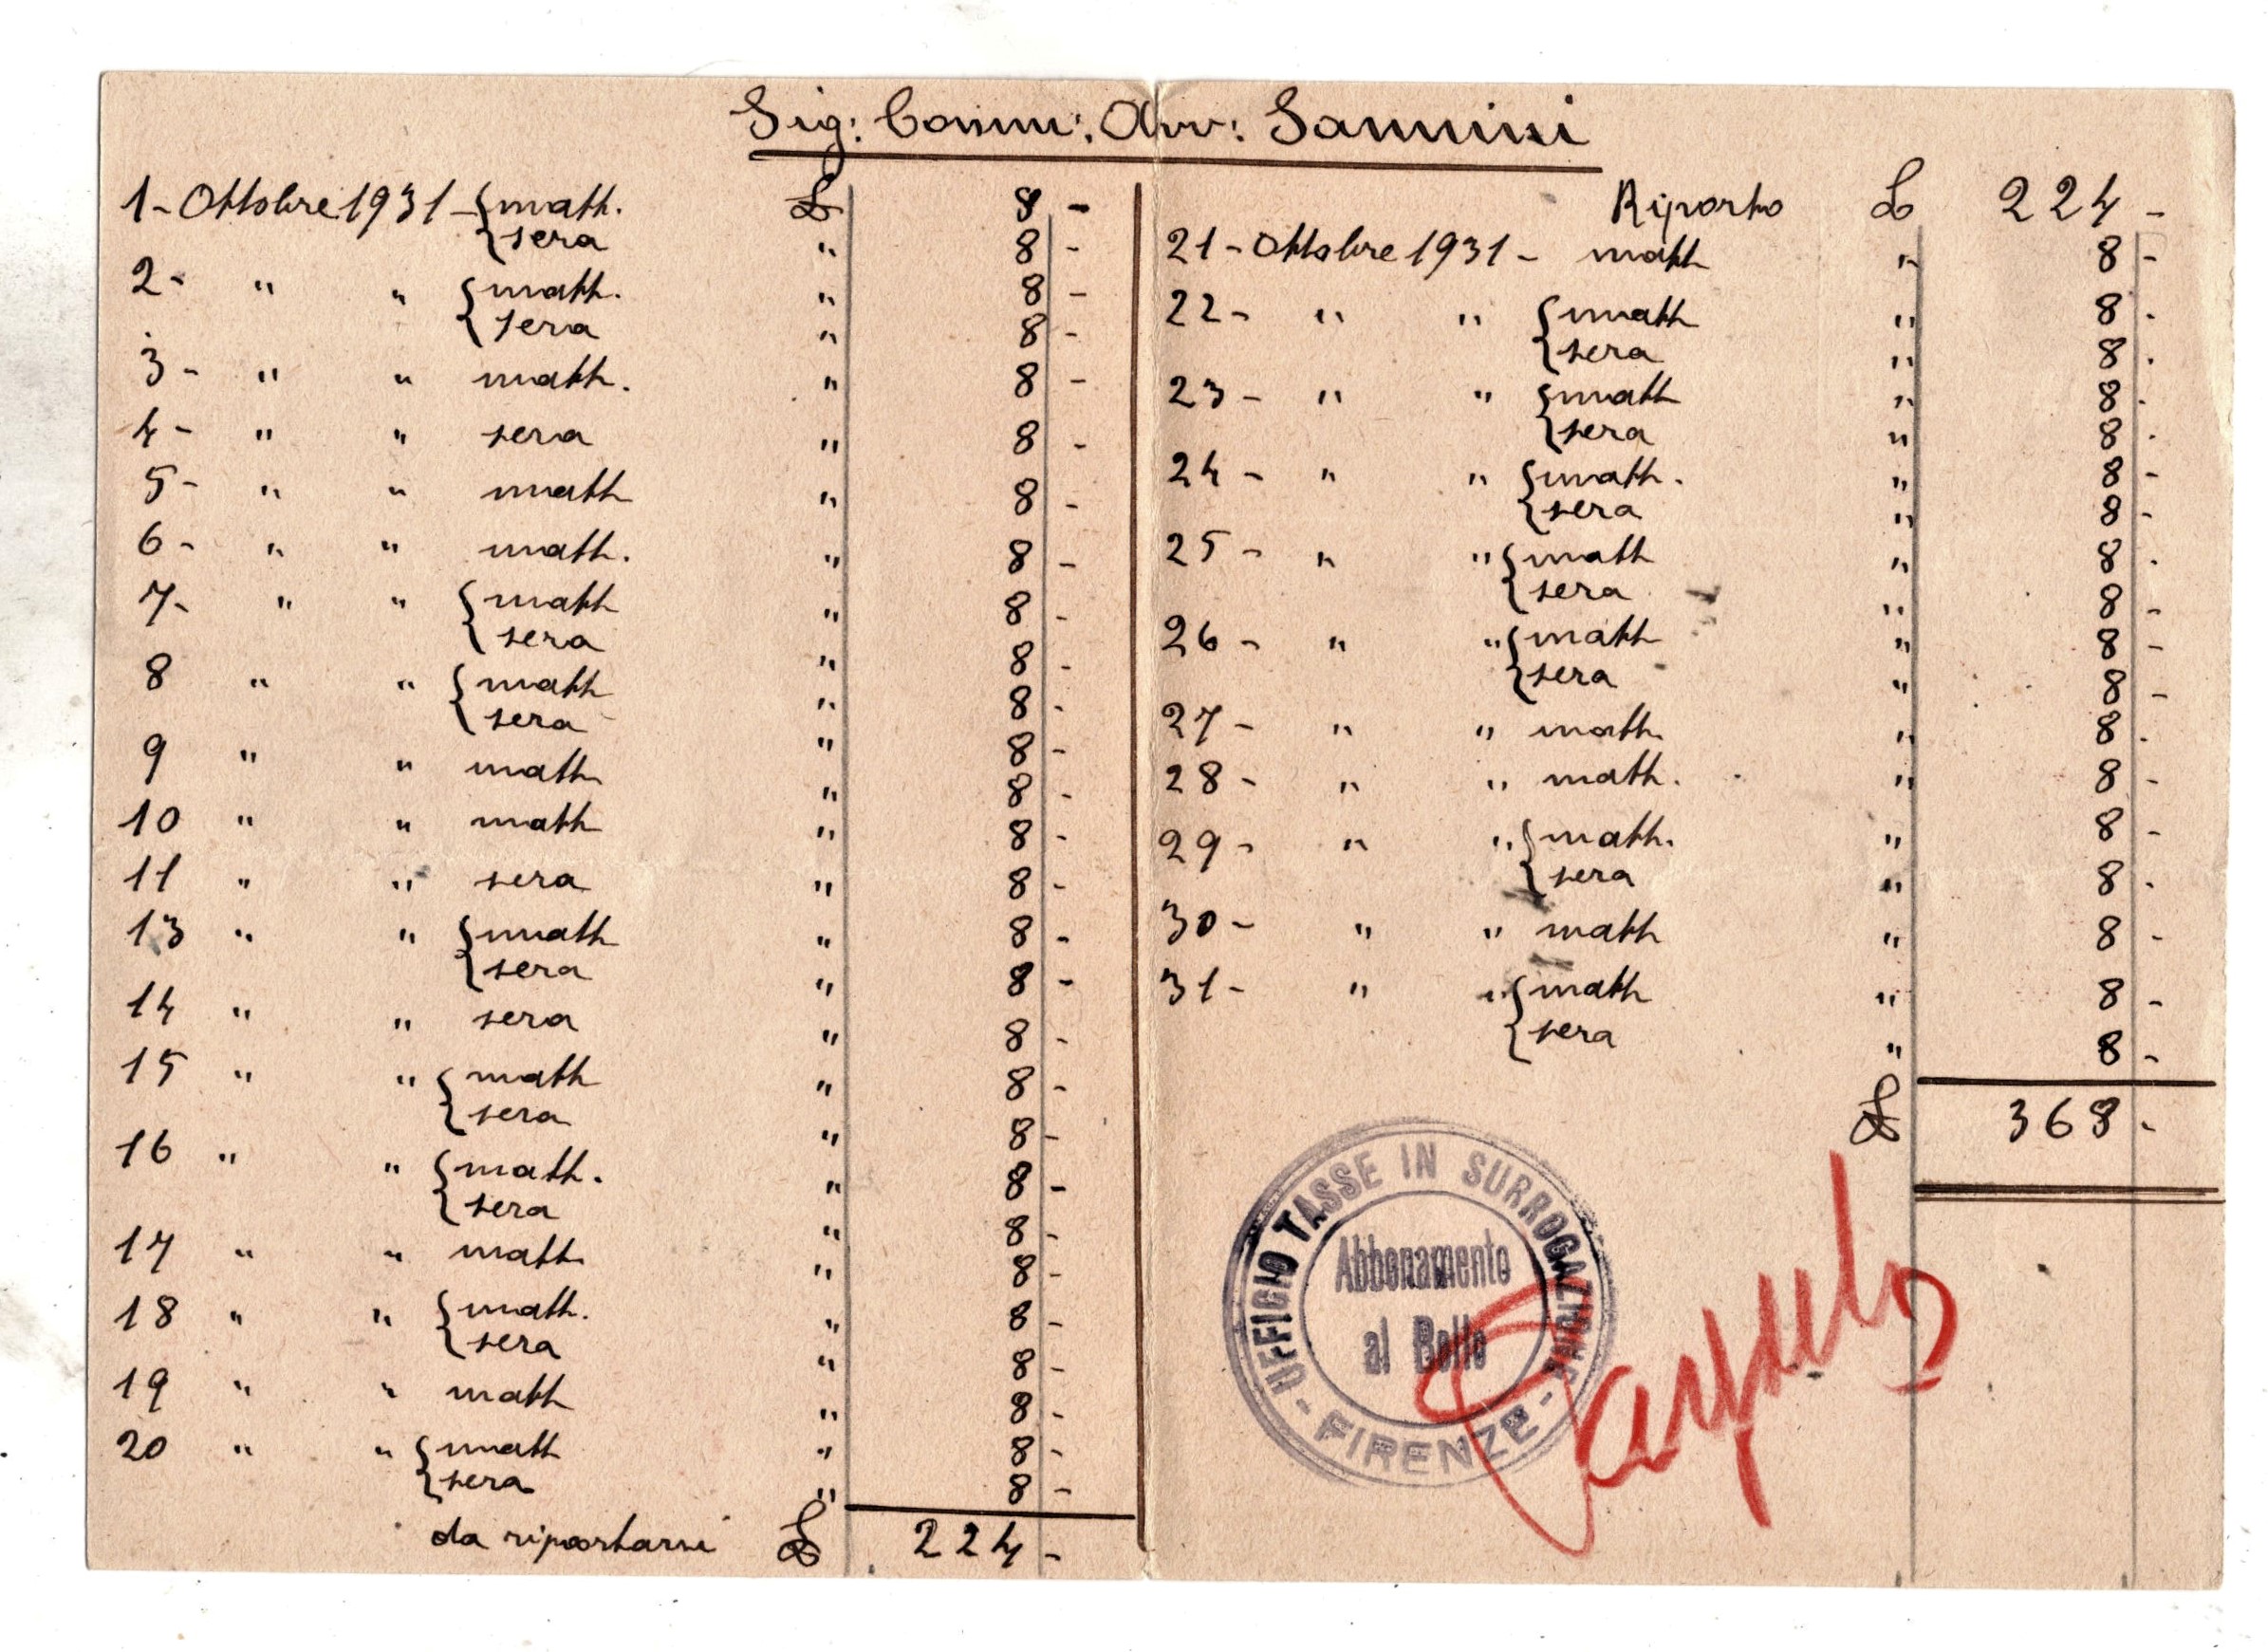 Sig: Comm: Avv: Sannini
1 - Ottobre 1931 - { matt. £ 8 -
{ sera " 8 -
2 - " " { matt. " 8 -
{ sera " 8 -
3 - " " matt. " 8 -
4 - " " sera " 8 -
5 - " " matt " 8 -
6 - " " matt. " 8 -
7 - " " { matt " 8 -
{ sera " 8 -
8 " " { matt " 8 -
{ sera " 8 -
9 " " matt " 8 -
10 " " matt " 8 -
11 " " sera " 8 -
13 " " { matt " 8 -
{ sera " 8 -
14 " " sera " 8 -
15 " " { matt " 8 -
{ sera " 8 -
16 " " { matt. " 8 -
{ sera " 8 -
17 " " matt " 8 -
18 " " { matt. " 8 -
{ sera " 8 -
19 " " matt " 8 -
20 " " { matt " 8 -
{ sera " 8 -
da riportarsi £ 224 -
Riporto £ 224 -
21 - Ottobre 1931 - matt " 8 -
22 - " " { matt " 8 -
{ sera " 8 -
23 - " " { matt " 8 -
{ sera " 8 -
24 - " " { matt. " 8 -
{ sera " 8 -
25 - " " { matt " 8 -
{ sera " 8 -
26 - " " { matt " 8 -
{ sera " 8 -
27 - " " matt. " 8 -
28 - " " matt. " 8 -
29 - " " { matt. " 8 -
{ sera " 8 -
30 - " " matt " 8 -
31 - " " { matt " 8 -
{ sera " 8 -
£ 368 -
UFFICIO TASSE IN SURROGAZIONE
Abbonamento
al Bollo
- FIRENZE -